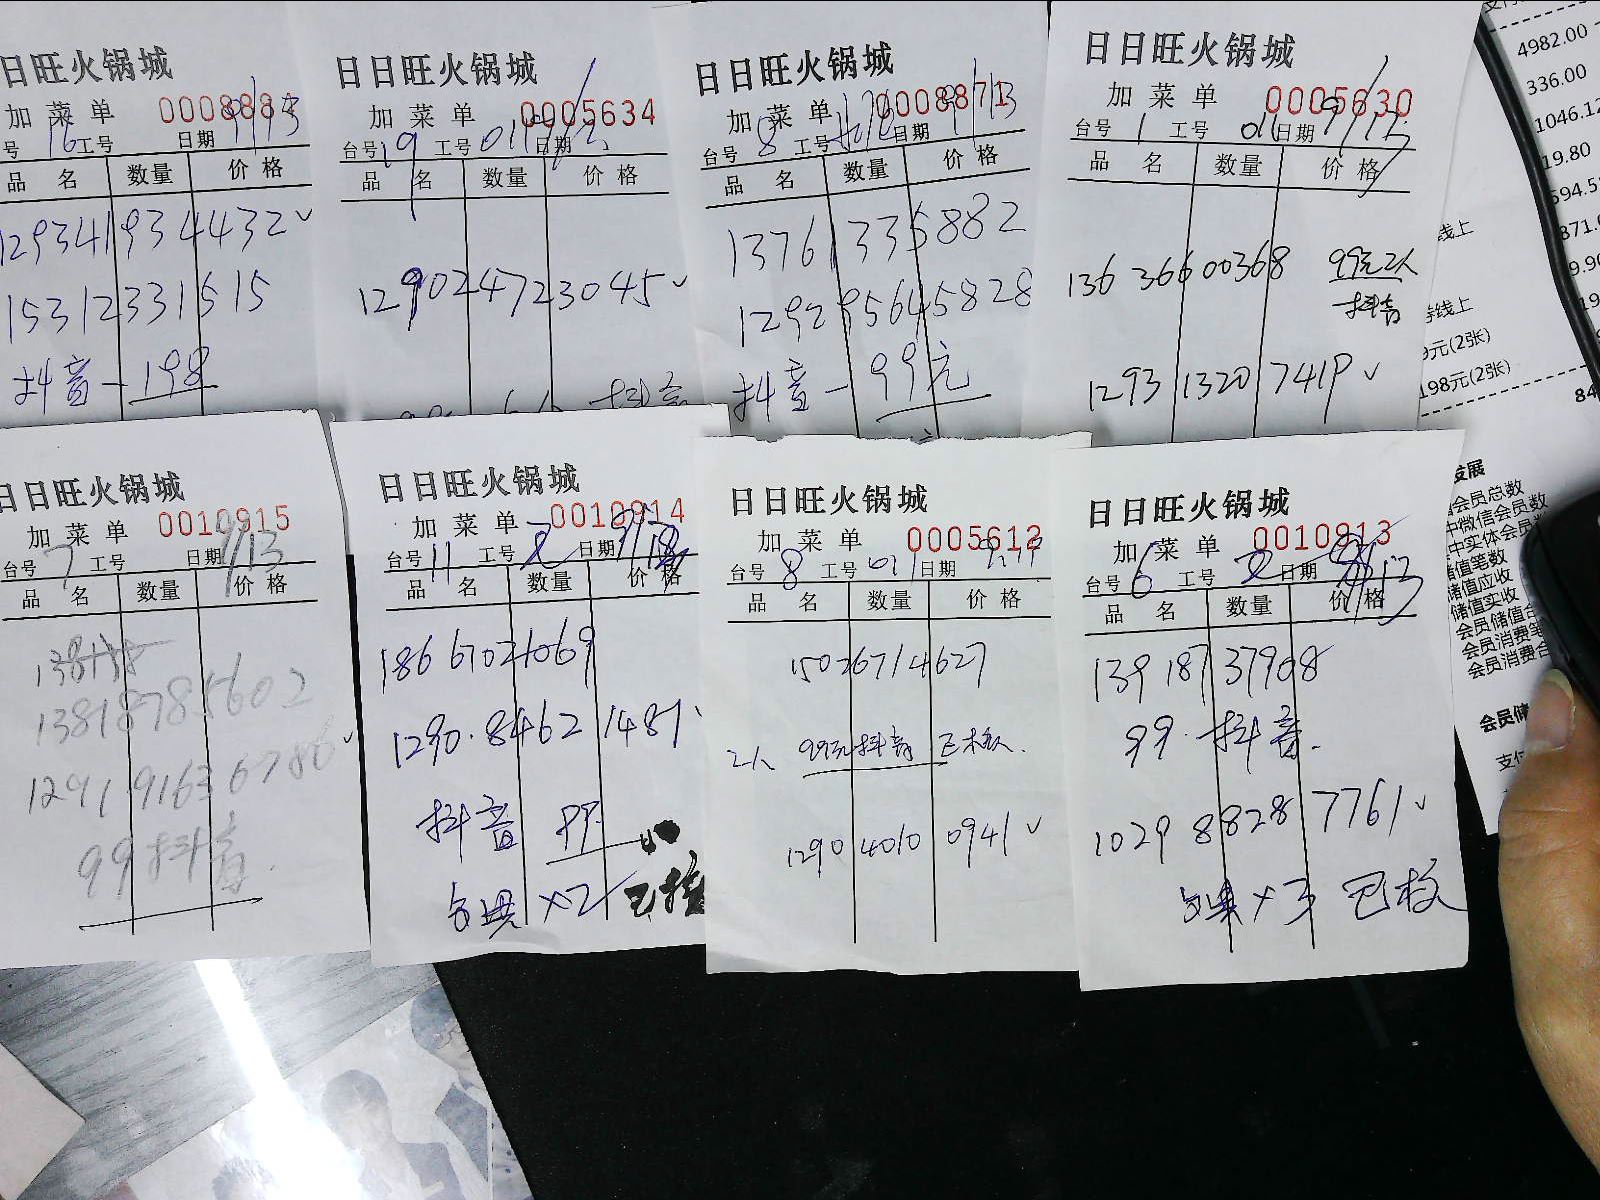 日日旺火锅城
加菜单
台号 16 工号 日期 9/13
品名 数量 价格
1293419344432✓
15312331515
抖音-198
日日旺火锅城
加菜单 0005634
台号 19 工号 011 日期
品名 数量 价格
129024723045✓
抖音
日日旺火锅城
加菜单 0008871
台号 8 工号 日期 9/13
品名 数量 价格
13761335882
129295645828
抖音-99元
日日旺火锅城
加菜单 0005630
台号 1 工号 011 日期 9/13
品名 数量 价格
136 36600368 99元2人
抖音
1293 1320 7419 ✓
4982.00
336.00
1046.12
19.80
594.5
871.
9.90
19
线上
线上
9元(2张)
198元(2张)
84
发展
会员总数
中微信会员数
中实体会员数
储值笔数
储值应收
储值实收
会员储值合
会员消费笔
会员消费合
会员储
支付
日日旺火锅城
加菜单 0010915
台号 7 工号 日期 9/13
品名 数量 价格
13818785602
1291 9163 6786✓
99抖音.
日日旺火锅城
加菜单 0010914
台号 11 工号 2 日期 9/13
品名 数量 价格
186 67021069
1290.8462 1481✓
抖音 99.
×2 已核
日日旺火锅城
加菜单 0005612
台号 8 工号 011 日期
品名 数量 价格
15026714627
2人 99元抖音 已核.
1290 4010 0941✓
日日旺火锅城
加菜单 0010913
台号 6 工号 2 日期 9/13
品名 数量 价格
139 187 37908
99.抖音.
1029 8828 7761✓
×3 已核